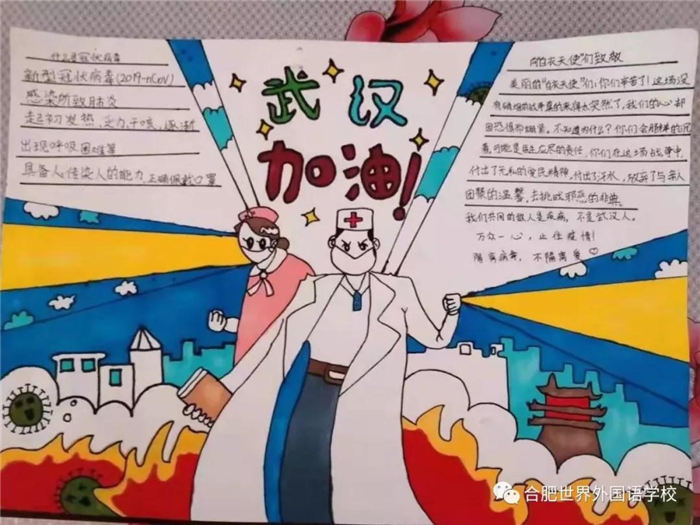 什么是冠状病毒
新型冠状病毒(2019-nCoV)
感染所致肺炎
起初发热,乏力,干咳,逐渐
出现呼吸困难等
具备人传染人的能力 正确佩戴口罩
武汉
加油!
向白衣天使"们致敬
美丽的"白衣天使"们:你们辛苦了!这场没
有硝烟的战争真的来得太突然了,我们的心却
因恐惧而
不知道为什么?你们会
应尽的责任,你们在这场战争中,
付出了无私的
精神,付出了汗水,放弃了与亲人
团聚的温馨,去挑战邪恶的非典。
我们共同的敌人是疾病,不是武汉人。
万众一心,止住疫情!
隔离病毒,不隔离爱♡
合肥世界外国语学校